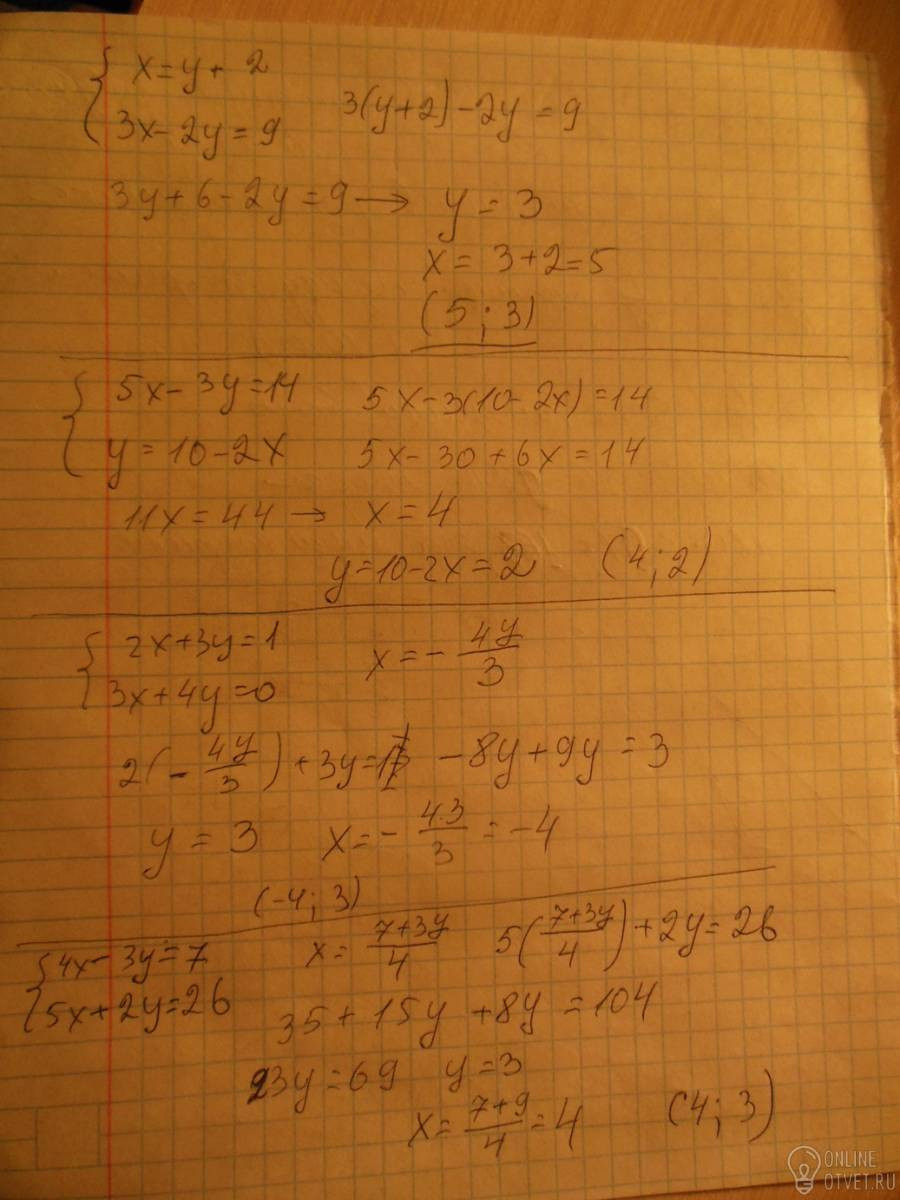 x = y + 2
3x - 2y = 9    3(y+2) - 2y = 9
3y + 6 - 2y = 9 → y = 3
x = 3 + 2 = 5
(5 ; 3)
5x - 3y = 14    5x - 3(10 - 2x) = 14
y = 10 - 2x    5x - 30 + 6x = 14
11x = 44 → x = 4
y = 10 - 2x = 2    (4 ; 2)
2x + 3y = 1    x = - 4y/3
3x + 4y = 0
2(- 4y/3) + 3y = 1    - 8y + 9y = 3
y = 3    x = - 4·3/3 = -4
(-4 ; 3)
4x - 3y = 7    x = 7+3y/4    5(7+3y/4) + 2y = 26
5x + 2y = 26    35 + 15y + 8y = 104
23y = 69    y = 3
x = 7+9/4 = 4    (4 ; 3)
ONLINE
OTVET.RU